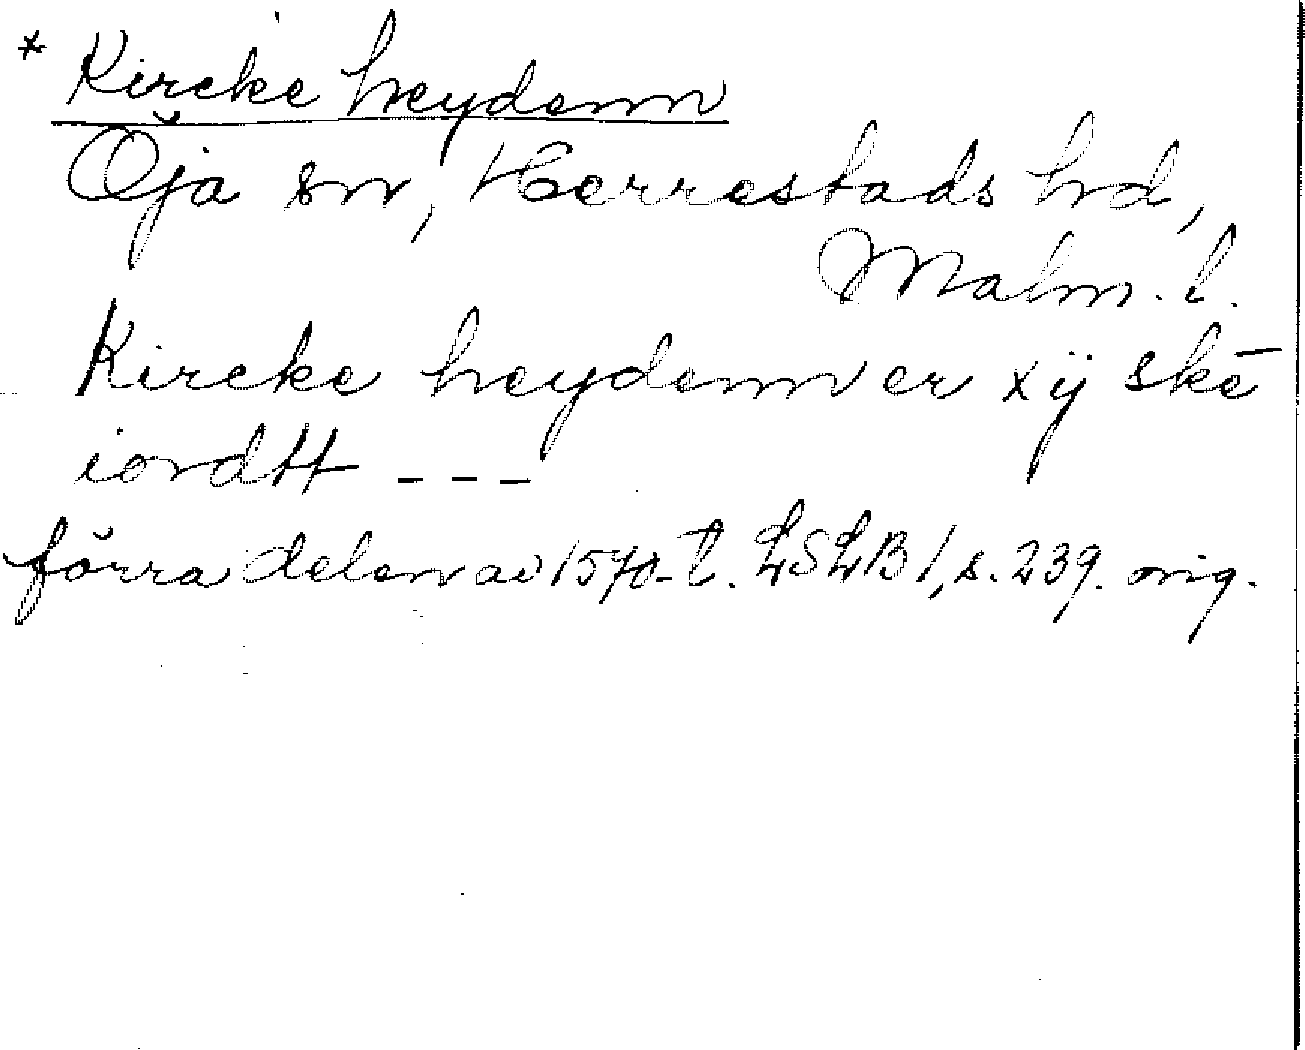 * Kircke heydenn
Öja sn, Herrestads hd,
Malm. l.
Kircke heydenn er xij skē
iordtt ---
förra delen av 1570-t. LSLB 1, s. 239. orig.